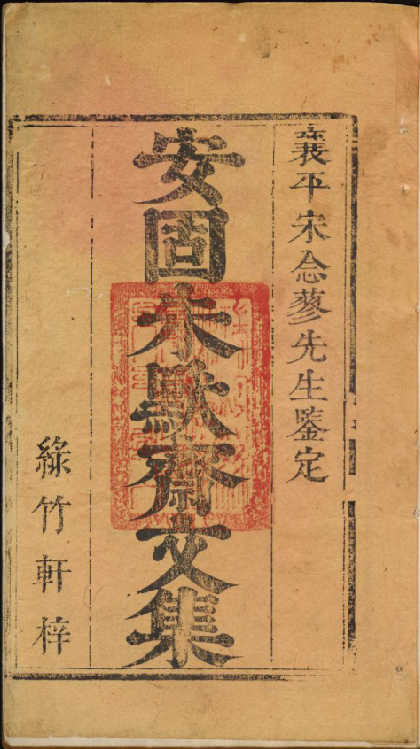 襄平宋念蓼先生鑒定
安固朱默齋文集
綠竹軒梓